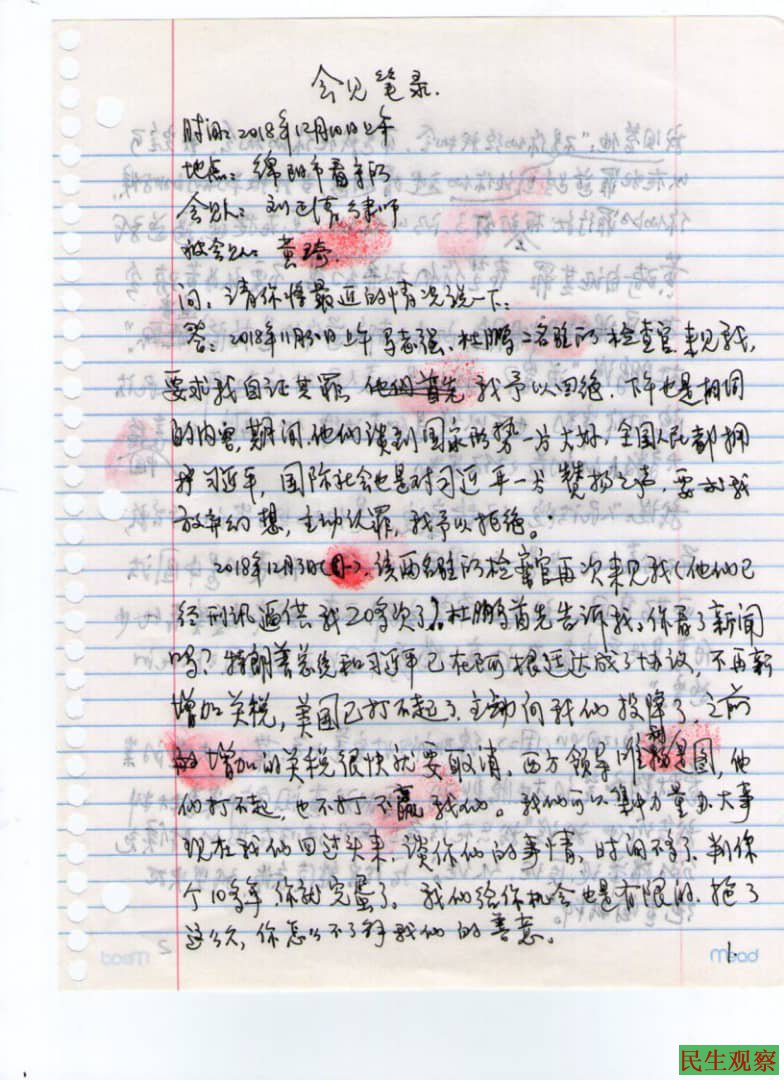 会见笔录.
时间：2018年12月10日上午
地点：绵阳市看守所
会见人：刘正清律师
被会见人：黄琦
问：请你将最近的情况说一下。
答：2018年11月30日上午 马志强、杜鹏二名驻所检查官来见我,
要求我自证其罪, 他们首先 我予以回绝. 下午也是相同
的内容, 期间, 他们谈到国家形势一片大好, 全国人民都拥
护习近平, 国际社会也是对习近平一片赞扬之声, 要求我
放弃幻想, 主动认罪, 我予以拒绝。
2018年12月3日(周一), 该两名驻所检察官再次来见我(他们已
经刑讯逼供我20多次了). 杜鹏首先告诉我, 你看了新闻
吗? 特朗普总统和习近平已在阿根廷达成了协议, 不再新
增加关税, 美国已打不起了, 主动向我们投降了. 之前
增加的关税很快就要取消, 西方领导唯利是图, 他
们打不起, 也不打不赢我们。我们可以集中力量办大事
现在我们回过头来, 谈你们的事情, 时间不多了, 判你
个10多年 你就完蛋了。我们给你机会也是有限的. 拖了
这么久, 你怎么不了解我们的善意.
Mead
民生观察